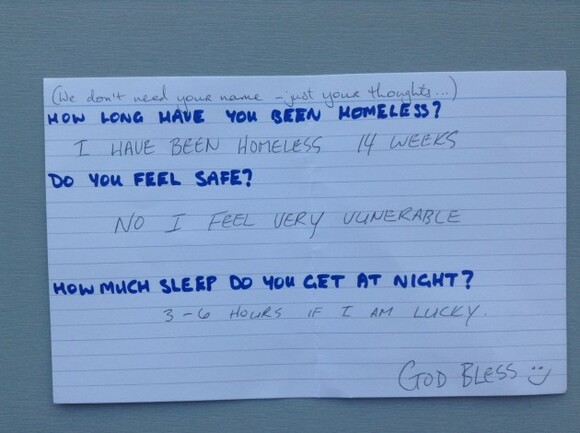 (We don't need your name - just your thoughts...)
HOW LONG HAVE YOU BEEN HOMELESS?
I HAVE BEEN HOMELESS 14 WEEKS
DO YOU FEEL SAFE?
NO I FEEL VERY VUNERABLE
HOW MUCH SLEEP DO YOU GET AT NIGHT?
3-6 HOURS IF I AM LUCKY.
GOD BLESS :)